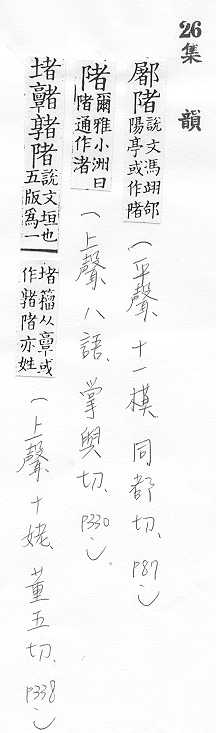 26集韻
鄏陼說文馮翊郃陽亭或作陼（平聲、十一模、同都切、P87）
陼爾雅小洲曰陼通作渚（上聲、八語、掌與切、P330）
堵𩫨陼說文垣也五版爲一堵籀从𩫖或作陼亦姓（上聲、十姥、董五切、P338）